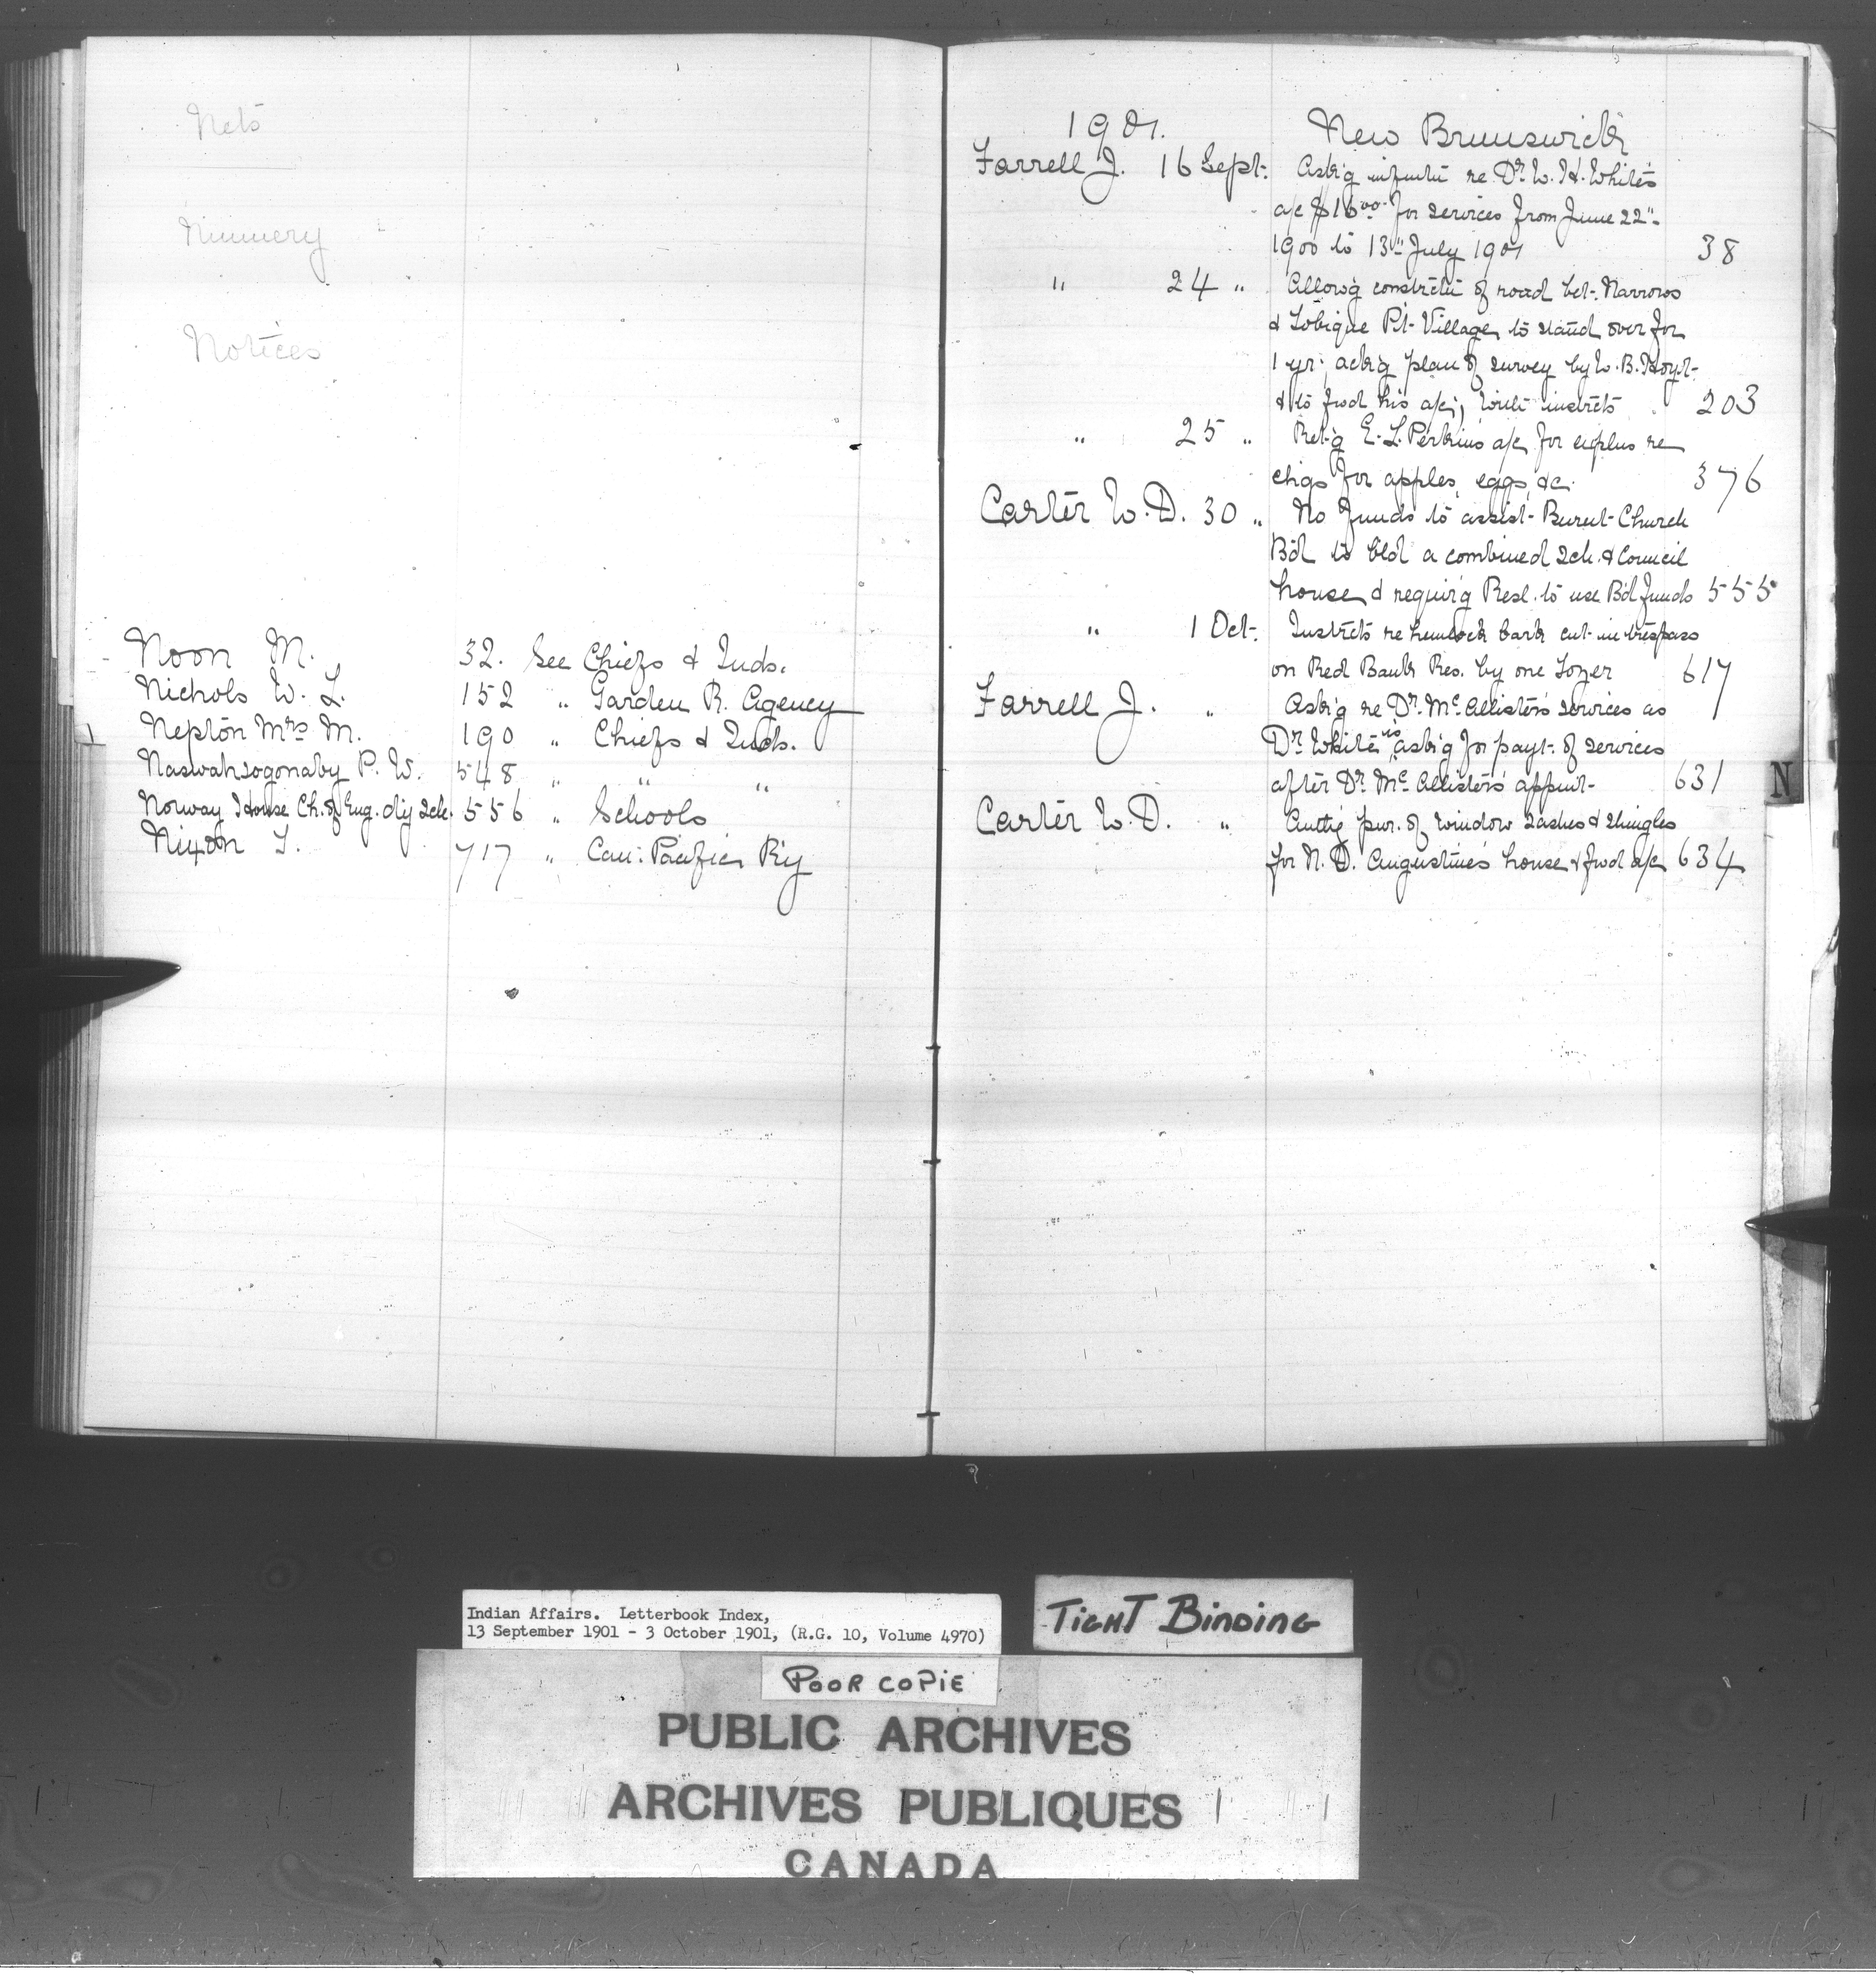 Nets
Nunnery
Notices
Noon M. 32. See Chiefs & Inds.
Nichols W. L. 152 " Garden R. Agency
Nepton Mrs M. 190 " Chiefs & Inds.
Naswahsogonaby P. W. 548 " " "
Norway House Ch. of Eng. d'y Sch. 556 " Schools
Nixon T. 717 " Can: Pacific R'y
1901. New Brunswick
Farrell J. 16 Sept. Ask'g infmtn re Dr W. H. White's
a/c $16.00 for services from June 22"
1900 to 13" July 1901 38
" 24 " Allow'g constrctn of road bet. Narrows
& Tobique Pt. Village to stand over for
1 yr; ack'g plan of survey by W. B. Hoyt
& to fwd his a/c; with instrcts 203
" 25 " Ret'g E. L. Perkins a/c for explns re
chgs for apples, eggs, &c. 376
Carter W. D. 30 " No funds to assist Burnt Church
B'd to b'ld a combined sch. & Council
house & requir'g Resl. to use B'd funds 555
" 1 Oct. Instrcts re hemlock bark cut in trespass
on Red Bank Res. by one Tozer 617
Farrell J. " Ask'g re Dr. McAllister's services as
Dr White is ask'g for payt. of services
after Dr McAllister's appmt. 631
Carter W. D. " pur. of window sashes & shingles
for N. D. Augustine's house & fwd a/c 634
N
Indian Affairs. Letterbook Index,
13 September 1901 - 3 October 1901, (R.G. 10, Volume 4970)
TIGHT BINDING
POOR COPIE
PUBLIC ARCHIVES
ARCHIVES PUBLIQUES
CANADA